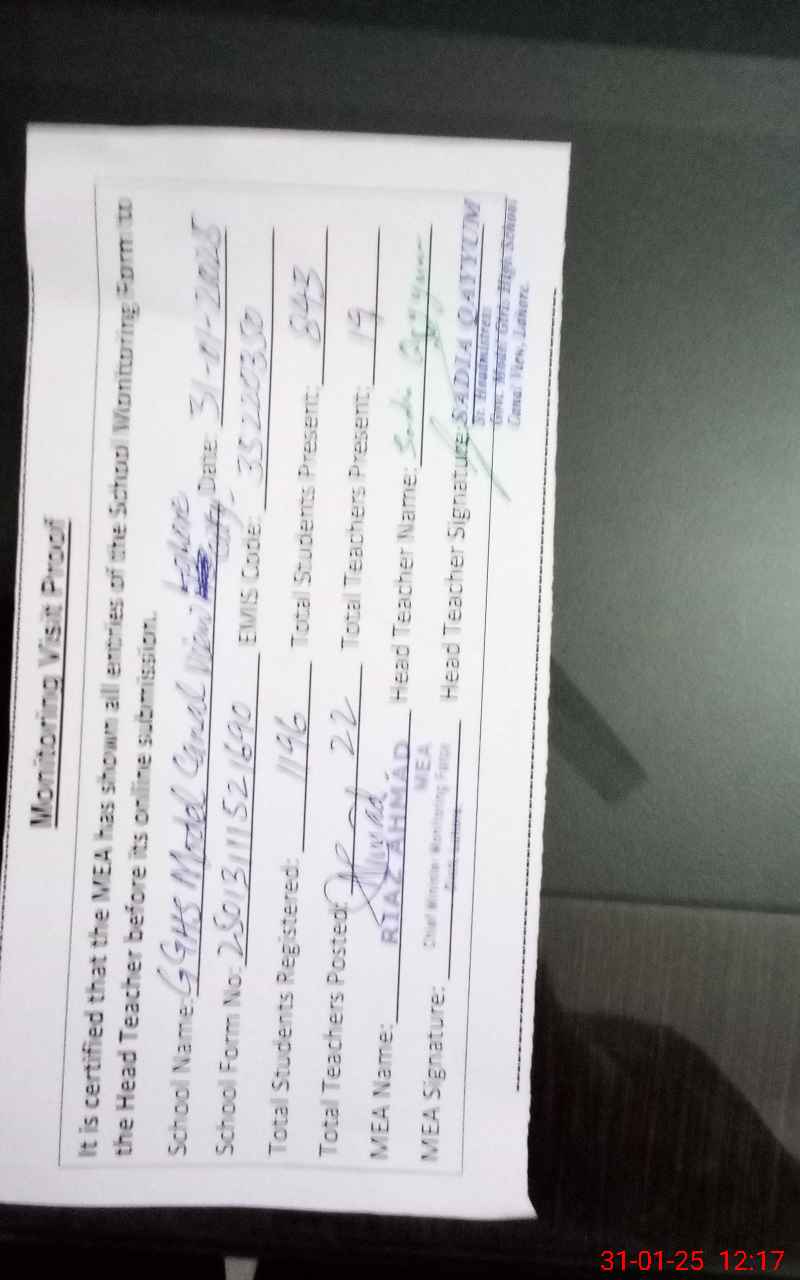 Monitoring Visit Proof
It is certified that the MEA has shown all entries of the School Monitoring Form to
the Head Teacher before its online submission.
School Name: GGHS Model Canal View Lahore Date: 31-01-2025
School Form No: 25013111521690 EMIS Code: 35220350
Total Students Registered: 1196 Total Students Present: 843
Total Teachers Posted: 22 Total Teachers Present: 19
MEA Name: RIAZ AHMAD Head Teacher Name: Sadia Qayyum
MEA
Chief Minister Monitoring Force
MEA Signature: Head Teacher Signature: SADIA QAYYUM
Sr. Headmistress
Govt. Model Girls High School
Canal View, Lahore.
31-01-25 12:17